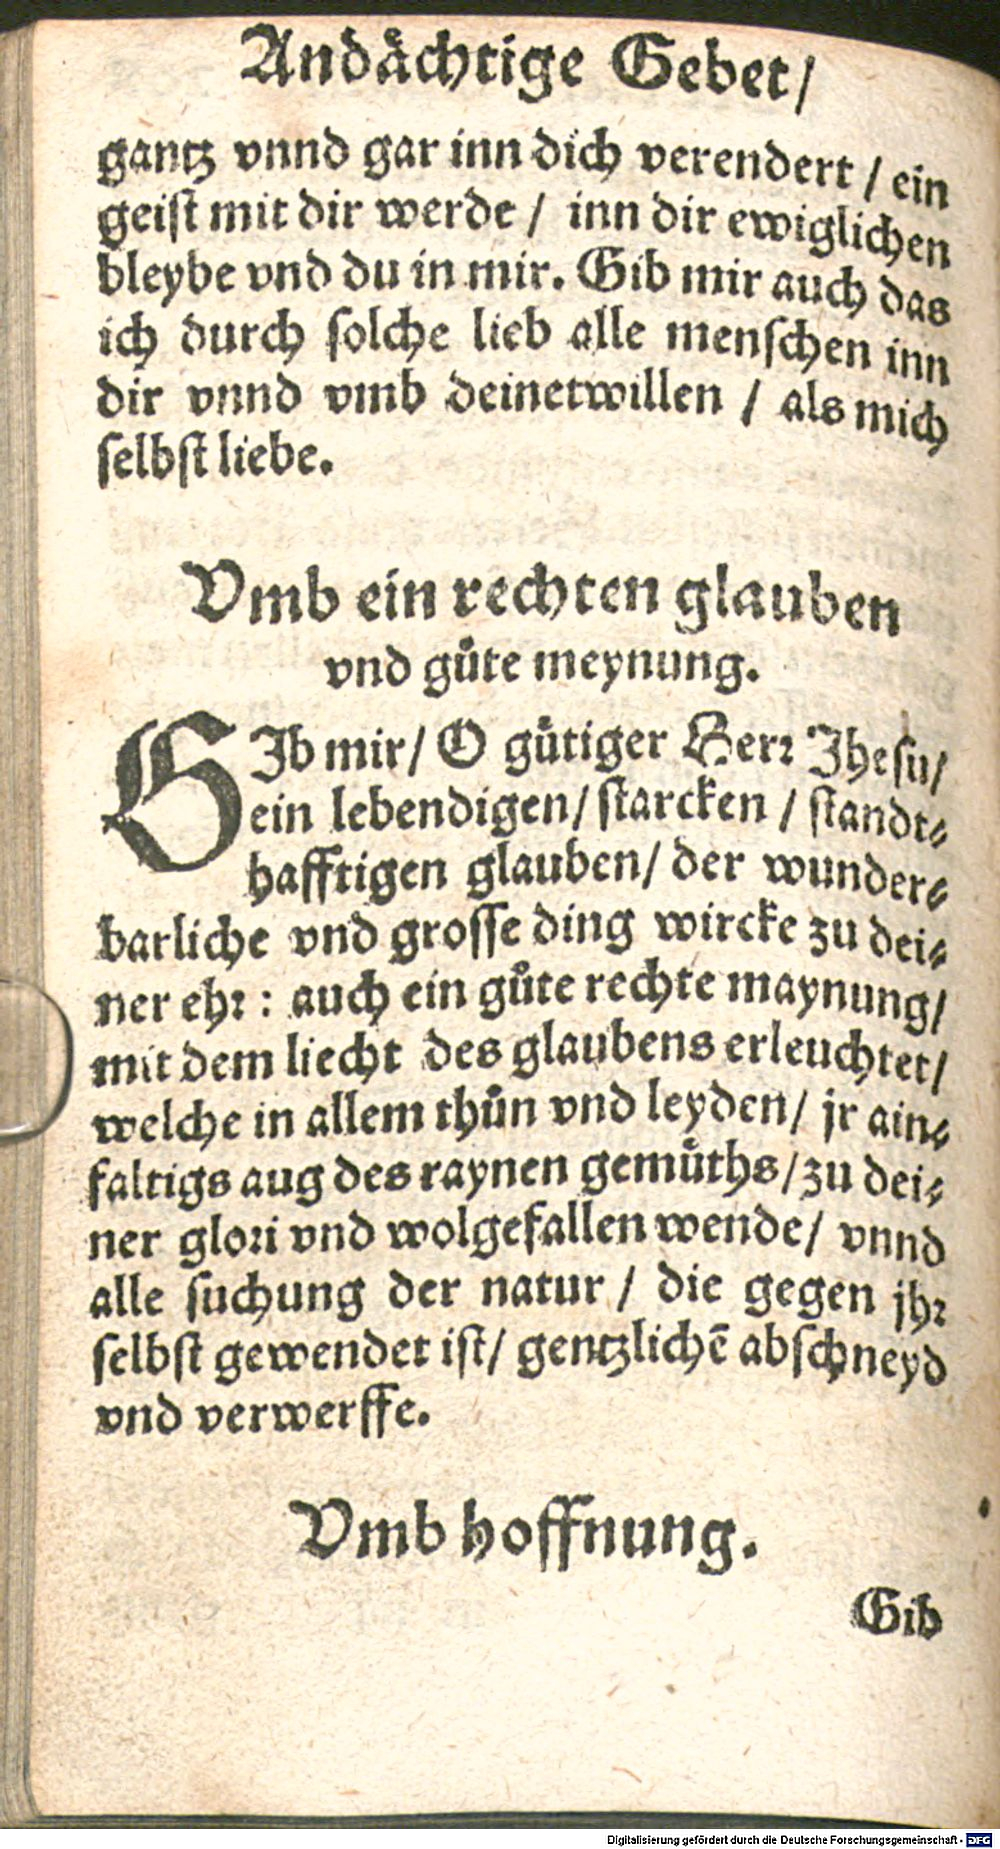 Andaͤchtige Gebet/
gantz vnnd gar inn dich verendert / ein
geist mit dir werde / inn dir ewiglichen
bleybe vnd du in mir. Gib mir auch das
ich durch solche lieb alle menschen inn
dir vnnd vmb deinetwillen / als mich
selbst liebe.
Vmb ein rechten glauben
vnd guͤte meynung.
GIb mir/ O guͤtiger Herr Jhesu/
ein lebendigen/ starcken / standt⸗
hafftigen glauben/ der wunder⸗
barliche vnd grosse ding wircke zu dei⸗
ner ehr : auch ein guͦte rechte maynung/
mit dem liecht des glaubens erleuchtet/
welche in allem thuͦn vnd leyden/ jr ain⸗
faltigs aug des raynen gemuͤths/ zu dei⸗
ner glori vnd wolgefallen wende/ vnnd
alle suchung der natur / die gegen jhr
selbst gewendet ist/ gentzlichē abschneyd
vnd verwerffe.
Vmb hoffnung.
Gib
Digitalisierung gefördert durch die Deutsche Forschungsgemeinschaft - DFG